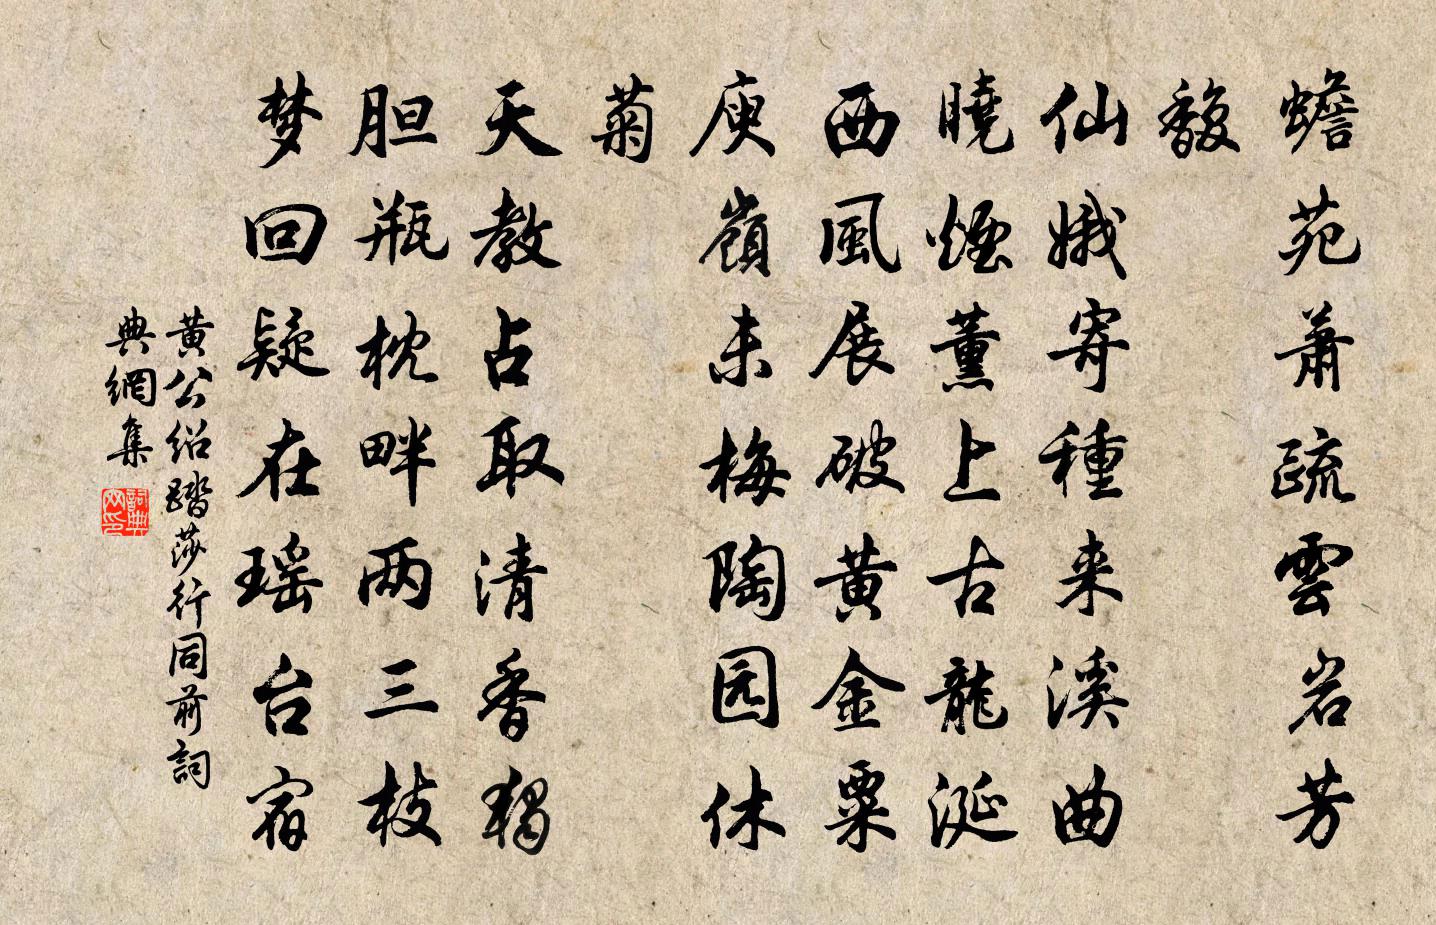 蟾苑萧疏雲岩芳
馥
仙娥寄種来溪曲
曉煙薰上古龍涎
西風展破黄金粟
庾嶺未梅陶园休
菊
天教占取清香獨
胆瓶枕畔两三枝
梦回疑在瑶台宿
黄公绍踏莎行同前詞
典網集
詞典
网印